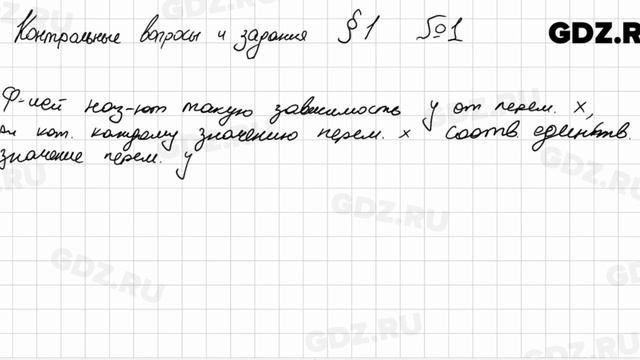 Контрольные вопросы и задания §1 №1
GDZ.R
Ф-ией наз-ют такую зависимость y от перем. x,
при кот. каждому значению перем. x соотв единств.
значение перем. y
GDZ.RU
GDZ.RU
GDZ.RU
GDZ.RU